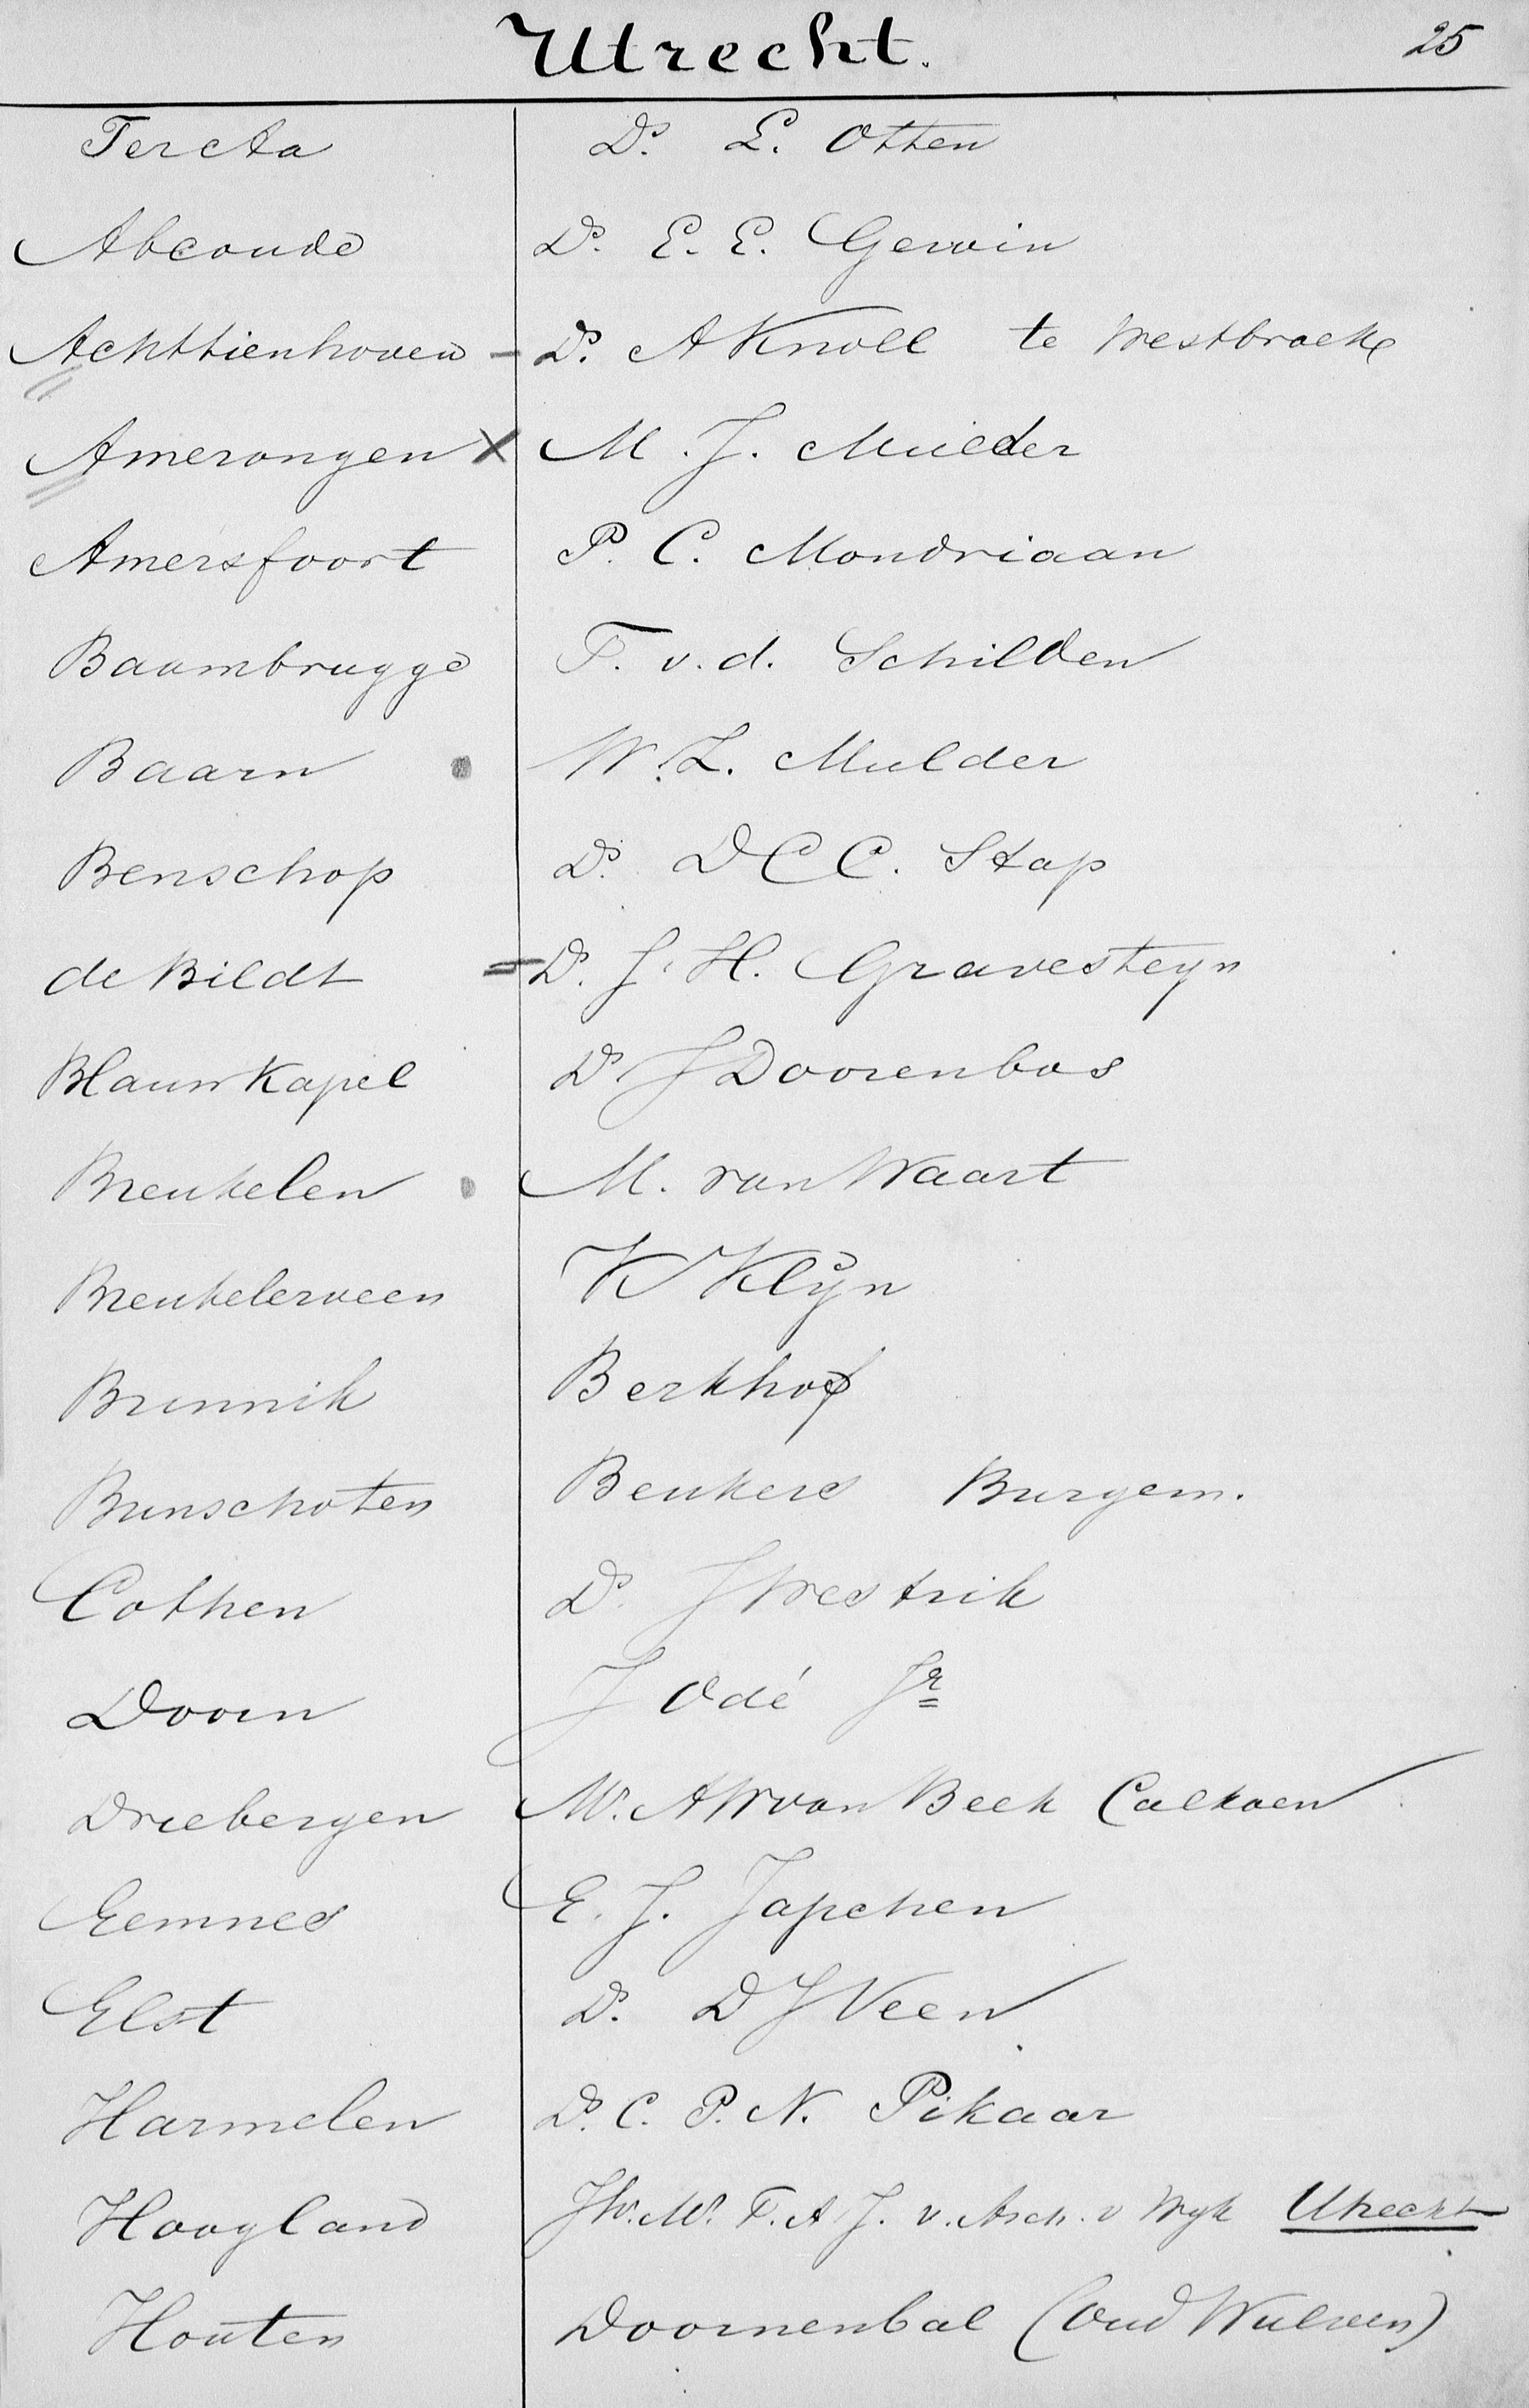 Utrecht. 25
Tercta Ds. L. Otten
Abcoude Ds. E. E. Gewin
Achttienhoven - Ds. A Knoll te Westbroek
Amerongen X M. J. Mulder
Amersfoort P. C. Mondriaan
Baambrugge F. v. d. Schilden
Baarn W. L. Mulder
Benschop Ds. D C C. Stap
de Bildt = Ds. J. H. Gravesteyn
Blauwkapel Ds J Doorenbos
Breukelen M. van Waart
Breukelerveen K Klijn
Bunnik Berkhof
Bunschoten Beukers Burgem.
Cothen Ds J Westrik
Doorn J Odé Jr
Driebergen Mr. A W van Beek Calkoen
Eemnes E. J. Japchen
Elst Ds. D J Veen
Harmelen Ds. C. P. N. Pikaar
Hoogland Jhr. Mr. F. A J. v. Asch. v Wyk Utrecht
Houten Doornenbal (Oud Wulven)